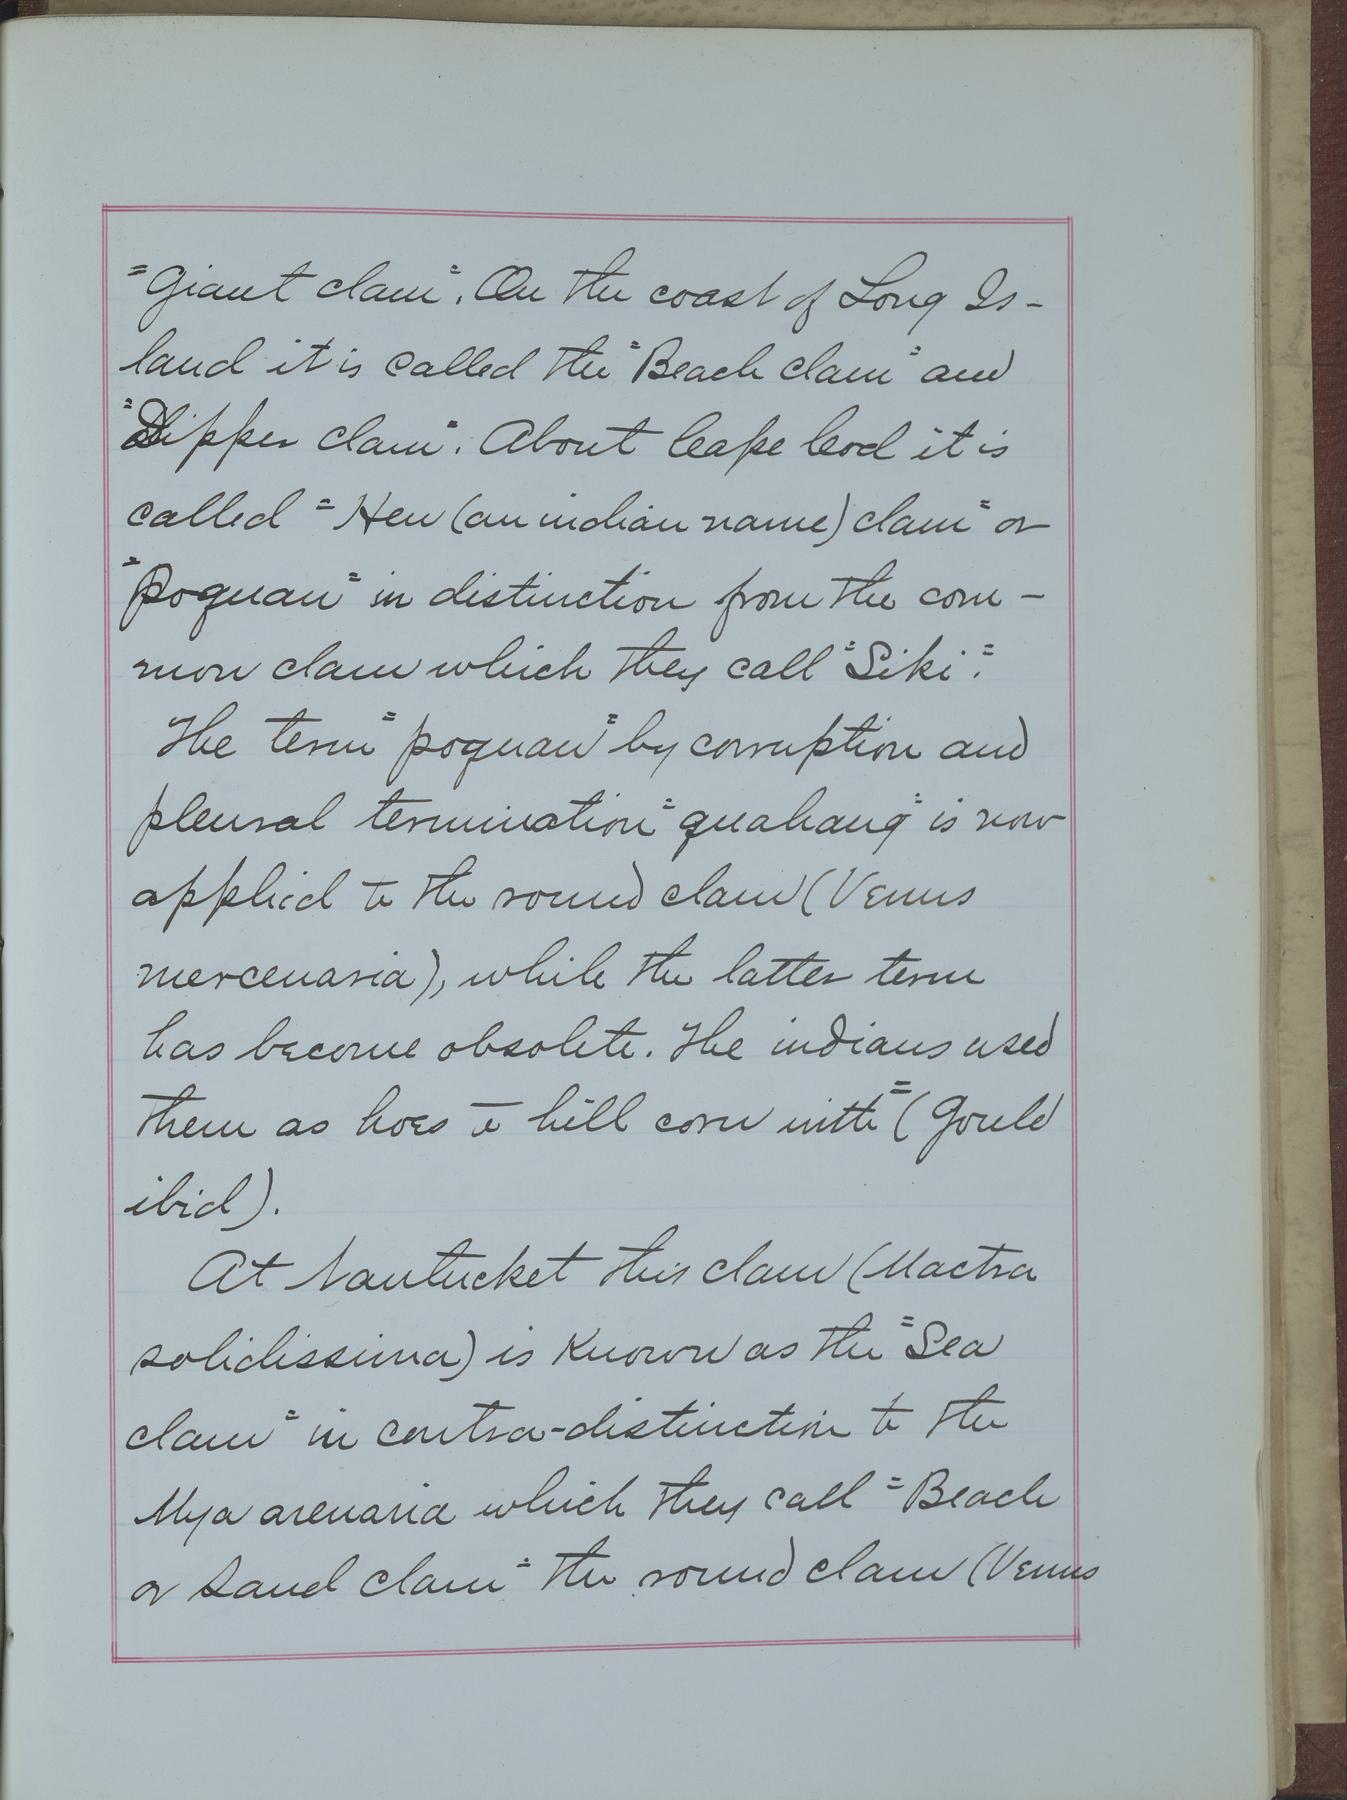 "Giant clam". On the coast of Long Is-
land it is called the "Beach clam" and
"Dipper clam". About Cape Cod it is
called "Hen (an indian name) clam" or
"Poquau" in distinction from the com-
mon clam which they call "Siki".
The term "poquau" by corruption and
pleural termination "quahaug" is now
applied to the round clam (Venus
mercenaria), while the latter term
has become obsolete. The indians used
them as hoes to hill corn with" (Gould
ibid).
At Nantucket this clam (Mactra
solidissima) is known as the "Sea
clam" in contra-distinction to the
Mya arenaria which they call "Beach
or Sand clam" the round clam (Venus